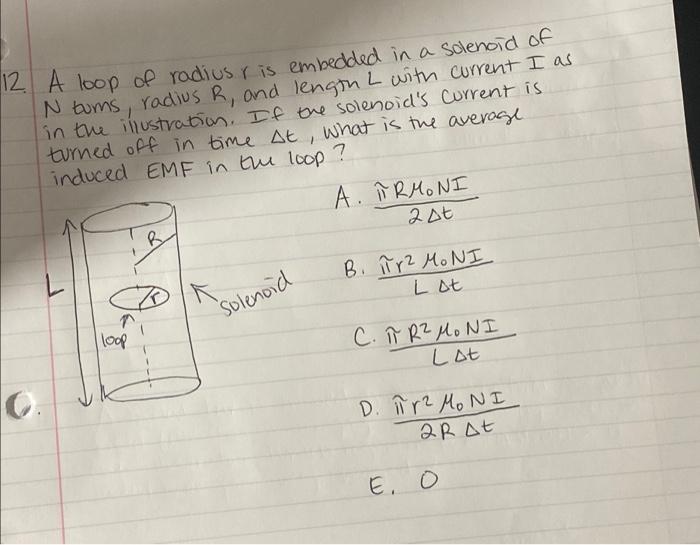 12. A loop of radius r is embedded in a solenoid of
N turns, radius R, and length L with current I as
in the illustration. If the solenoid's current is
turned off in time Δt, what is the average
induced EMF in the loop?
A. πRμ₀NI / 2Δt
R
B. πr² μ₀NI / L Δt
L
r
solenoid
loop
C. πR² μ₀NI / LΔt
D. πr² μ₀NI / 2R Δt
E. 0